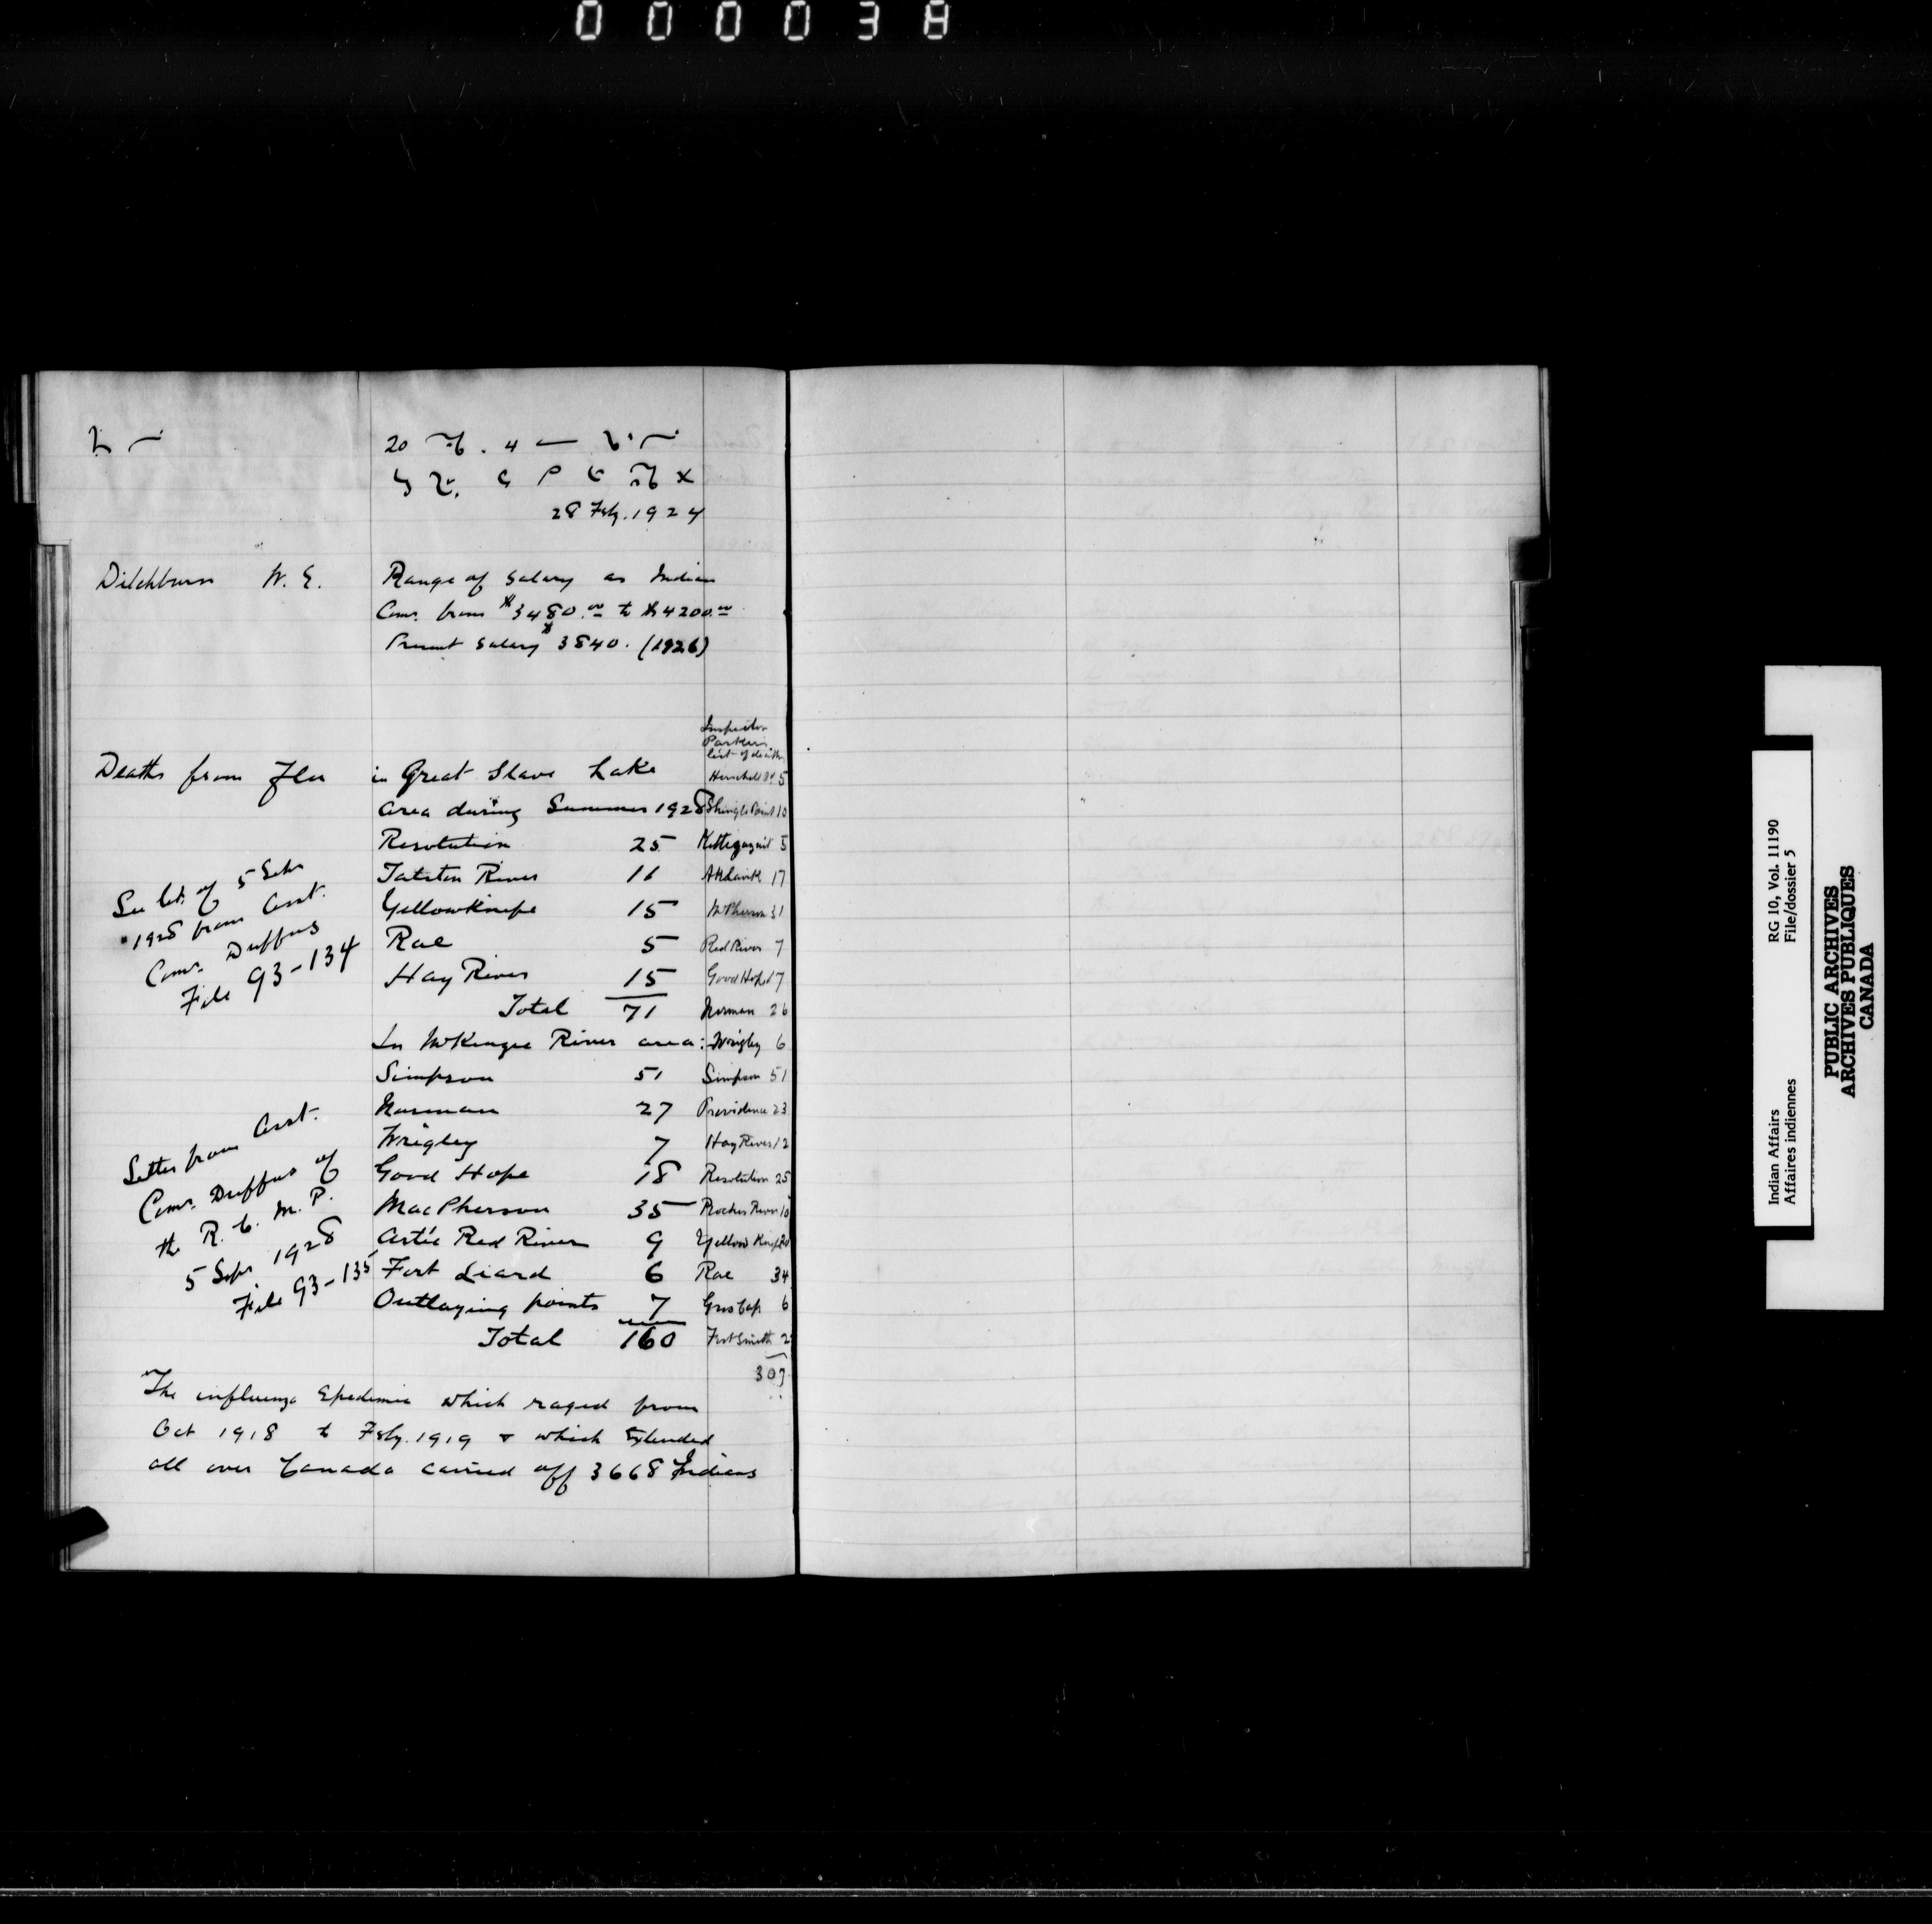 000038
20
28 Feby. 1924
Ditchburn W. E.
Range of salary as Indian
Comr. from $3480.00 to $4200.00
Present salary $3840. (1926)
Inspector
Parker's
list of deaths
Deaths from Flu
in Great Slave Lake
area during Summer 1928
Resolution 25
Taltson River 11
Yellowknife 15
Rae 5
Hay River 15
Total 71
See let. of 5 Sept
1928 from Asst.
Comr. Duffus
File 93-134
In McKenzie River area:
Simpson 51
Norman 27
Wrigley 7
Good Hope 18
MacPherson 35
Artic Red River 9
Fort Liard 6
Outlaying points 7
Total 160
Letter from Asst.
Comr. Duffus of
the R. C. M. P.
5 Sept 1928
File 93-135
Herschell 5
Shingle Point 10
Kittegazuit 5
Aklavik 17
McPherson 31
Red River 7
Good Hope 17
Norman 26
Wrigley 6
Simpson 51
Providence 23
Hay River 12
Resolution 25
Rocher River 10
Yellow Knife
Rae 34
Gros Cap 6
Fort Smith 2
307
The influenza Epedimic which raged from
Oct 1918 to Feby. 1919 & which Extended
all over Canada carried off 3668 Indians
Indian Affairs
Affaires indiennes
RG 10, Vol. 11190
File/dossier 5
PUBLIC ARCHIVES
ARCHIVES PUBLIQUES
CANADA